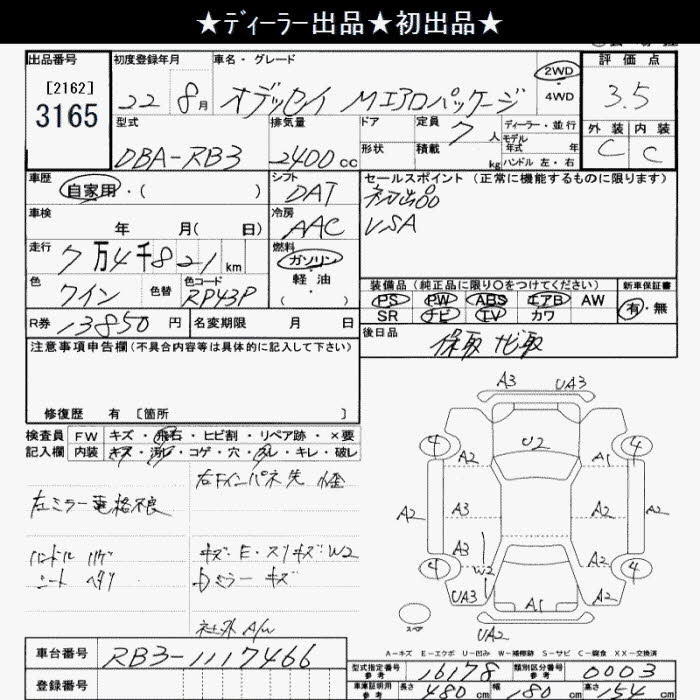 ★ディーラー出品★初出品★
出品番号
[2162]
3165
初度登録年月
22 8月
車名・グレード
オデッセイ Mエアロパッケージ
2WD
・
4WD
評価点
3.5
外装 内装
C C
型式
DBA-RB3
排気量
2400cc
ドア
形状
定員 7人
積載 kg
ディーラー・並行
モデル
年式 年
ハンドル 左・右
車歴
自家用・( )
シフト
DAT
セールスポイント (正常に機能するものに限ります)
初出品
VSA
車検
年 月( 日)
冷房
AAC
走行
7万4千821km
燃料
ガソリン
・
軽油
( ・ )
色
ワイン
色替
色コード
RP43P
装備品 (純正品に限り○をつけてください)
PS PW ABS エアB AW
SR ナビ TV カワ
新車保証書
有・無
R券 13850円
名変期限 月 日
後日品
保取 ナビ取
注意事項申告欄 (不具合内容等は具体的に記入して下さい)
修復歴 有 [箇所 ]
検査員
記入欄
FW キズ・飛石・ヒビ割・リペア跡・×要
内装 キズ・汚レ・コゲ・穴・スレ・キレ・破レ
右Fインパネ先
左ミラー電格不良
ハンドル ハゲ
シート ヘタリ
キズ・E・スリキズ W2
ミラー キズ
社外 A/W
A3 UA3
4 4
U2
A2 A1
A2 A3 A2 A2
A3
W2
4 4
A2
UA3 A1 A2
UA2
スペア
A-キズ E-エクボ U-凹み W-補修跡 S-サビ C-腐食 XX-交換済
車台番号
RB3-1117466
登録番号
型式指定番号
参考
16178
類別区分番号
参考
0003
車庫証明用
参考
長さ 480cm
幅 180cm
高さ 154cm